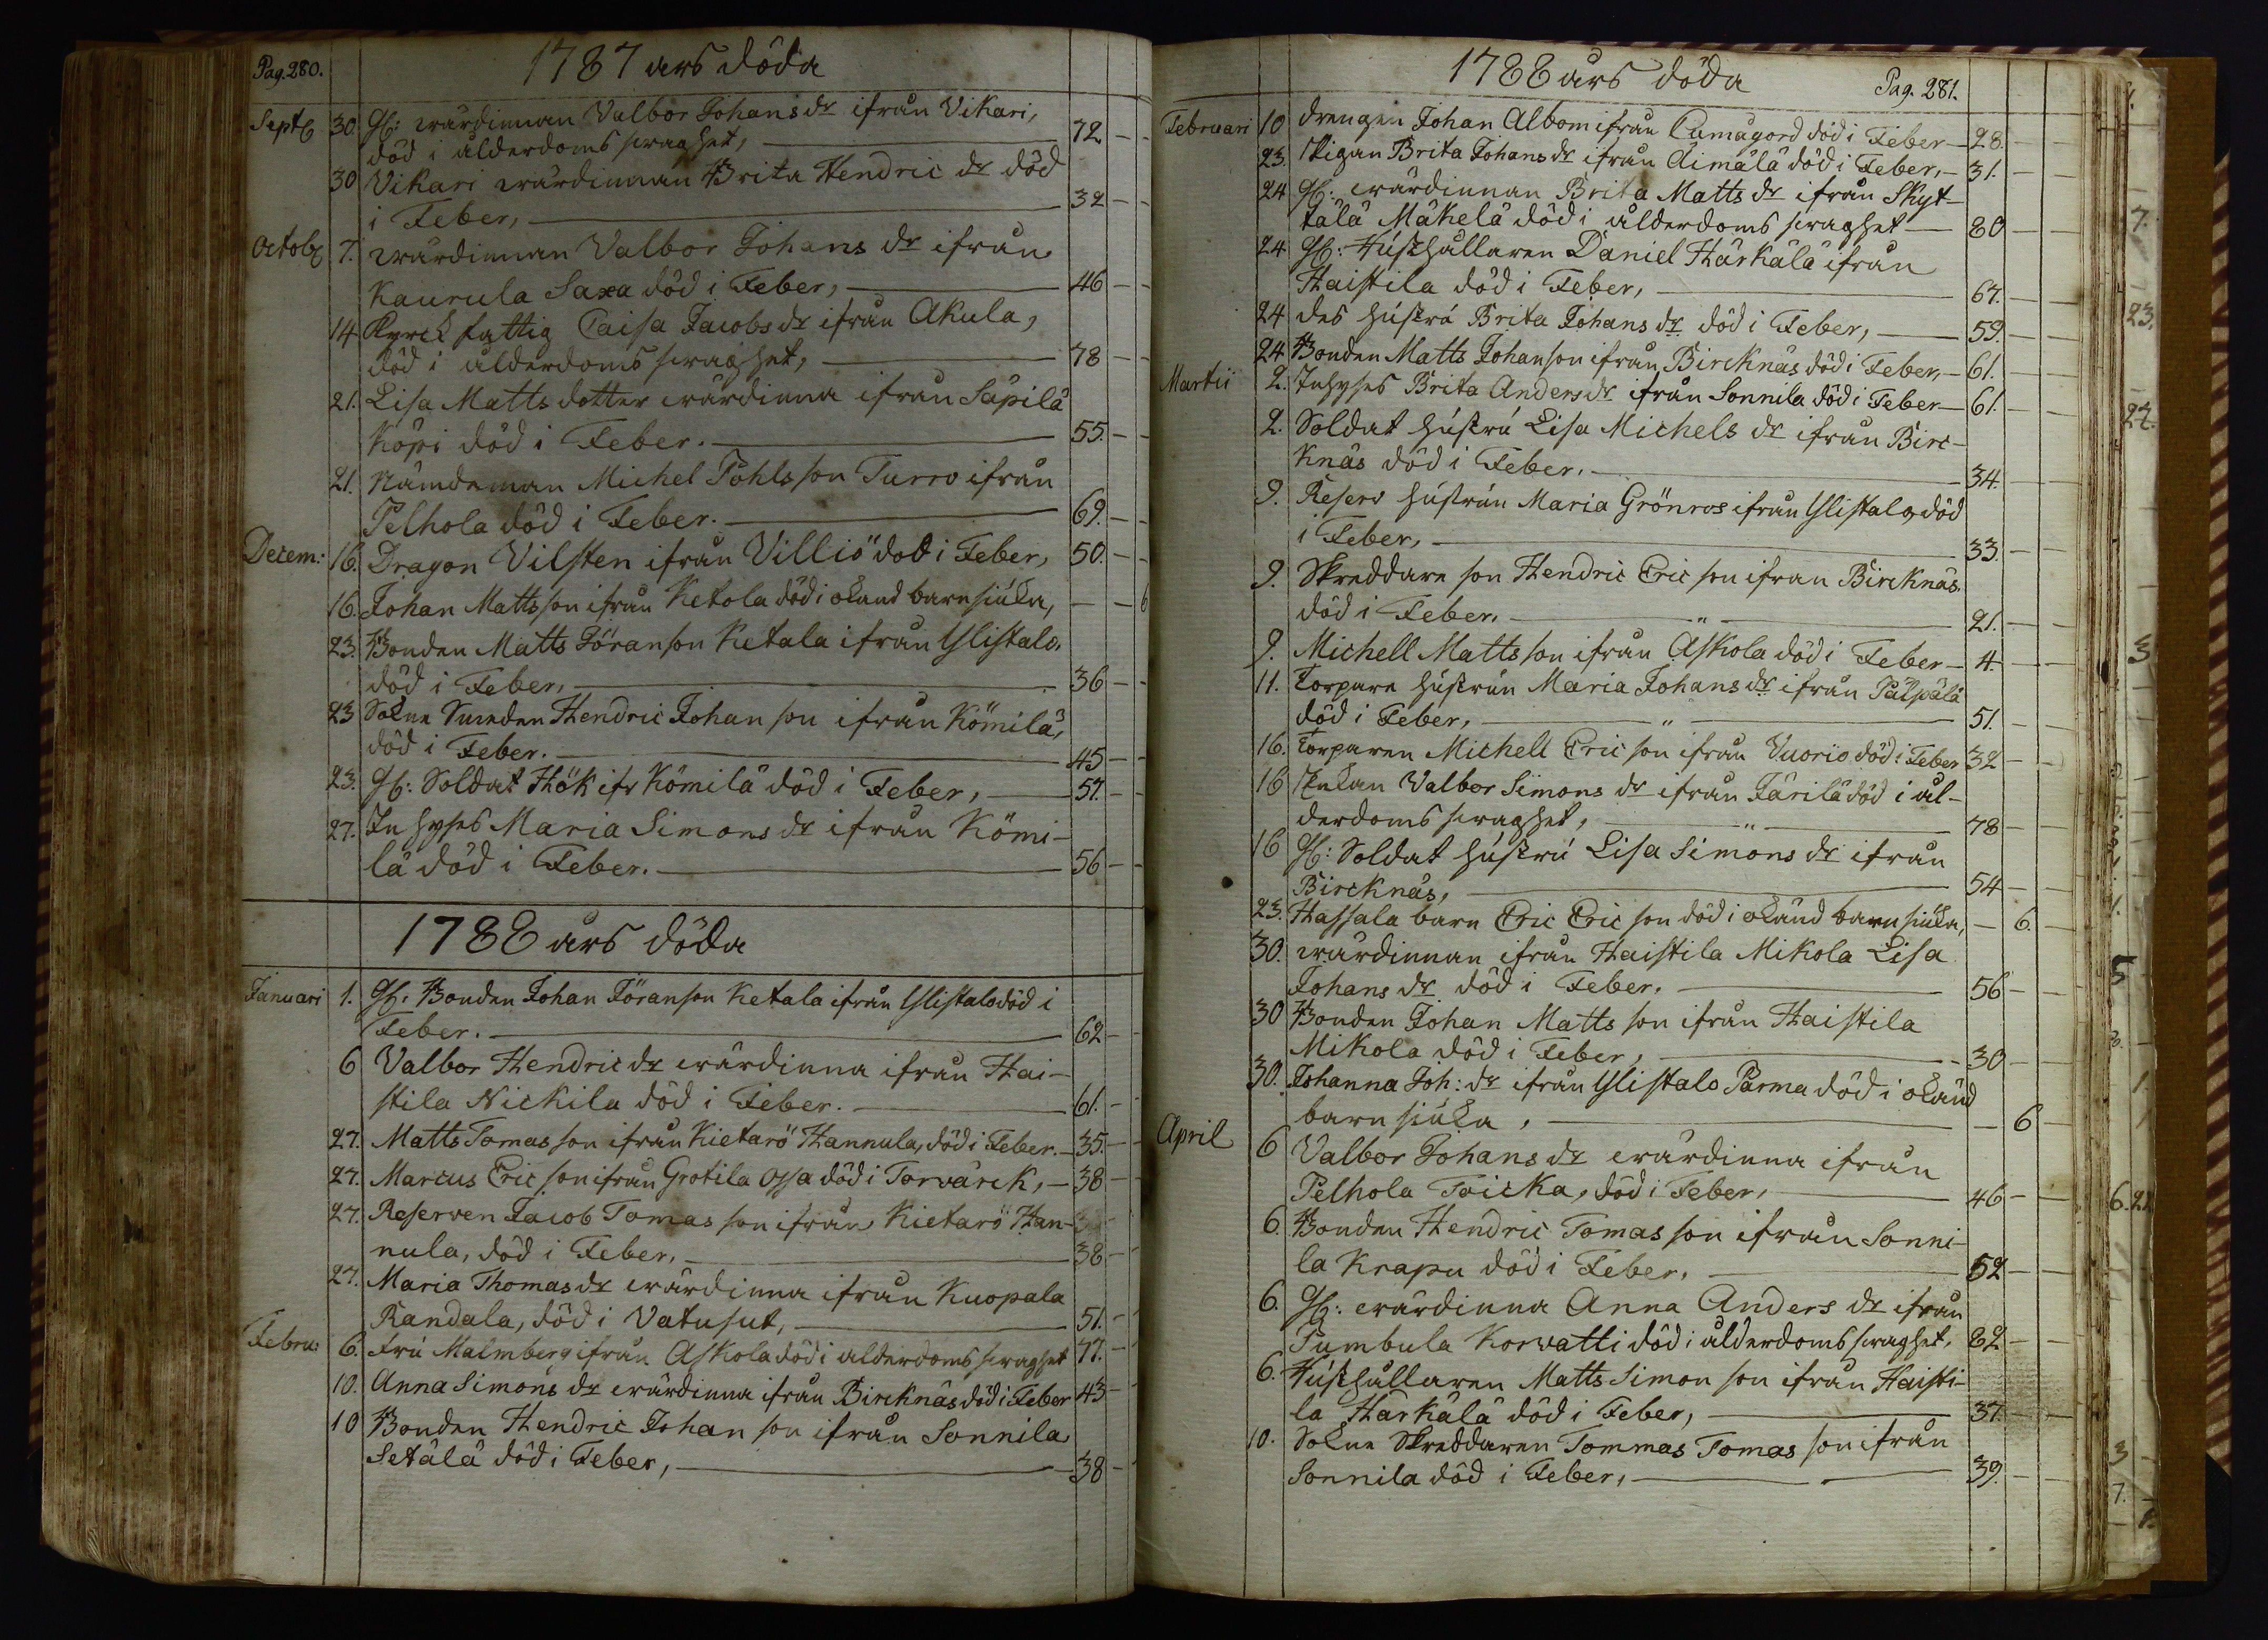 Pag. 280.
1787 ars döda
Septb 30 Gl: wärdinnan Valbor Johans dr ifrån Vikari,
död i ålderdoms swaghet, 72 -
30 Vikari wärdinnan Brita Hendric dr död
i Feber, 32 -
Octob 7. wärdinnan Valbor Johans dr ifrån
Kaurula Saxa död i Feber, 46 -
14 Kyrck fattig Caisa Jacobs dr ifrån Akula,
död i ålderdoms swaghet, 78 -
21. Lisa Matts dotter wärdinna ifrån Säpilä
Köpi död i Feber. 55. -
21. Nämdeman Michel Påhlsson Turro ifrån
Pelhola död i Feber. 69. -
Decem: 16. Dragon Vilsten ifrån Villiö död i Feber, 50. -
16. Johan Mattsson ifrån Ketola död i okänd barnsiúka, - - 6
23. Bonden Matts Jöranson Ketala ifrån Ylistalo,
död i Feber, 36 -
23 Sokne Smeden Hendric Johanson ifrån Kömilä,
död i Feber. 45 -
23. Gl: Soldat Hök ifr Kömilä död i Feber, 57. -
27. Inhyses Maria Simons dr ifrån Kömi-
lä död i Feber. 56 -
1788 års döda
Januari 1. Gl: Bonden Johan Jöranson Ketala ifrån Ylistalo död i
Feber. 62 -
6 Valbor Hendric dr wärdinna ifrån Hai-
stila Nickila död i Feber. 61. -
27. Matts Tomasson ifrån Kietarö Hannula, död i Feber. 35. -
27. Marcus Ericson ifrån Grotila Ossa död i Torvärck, 38 -
27. Reserven Jacob Tomasson ifrån Kietarö Han-
nula, död i Feber, 38 -
27. Maria Thomas dr wärdinna ifrån Kuopala
Randala, död i Vatusut, 51. -
Febru: 6. Frú Malmberg ifrån Askola död i alderdoms swaghet 77. -
10. Anna Simons dr wärdinna ifrån Bircknäs död i Feber 43 -
10 Bonden Hendric Johanson ifrån Sonnila
Setälä död i Feber, 38 -
1788 års döda
Pag. 281.
Februari 10 drengen Johan Albom ifrån Cumågord död i Feber 28.
23. Pigan Brita Johans dr ifrån Äimälä död i Feber, 31. -
24 Gl: wärdinnan Brita Matts dr ifrån Skyt-
tälä Mäkelä död i ålderdoms swaghet 80 -
24. Gl: Húshållaren Daniel Härkälä ifrån
Haistila död i Feber, 67. -
24 des hústrú Brita Johans dr död i Feber, 59. -
24. Bonden Matts Johanson ifrån Bircknäs död i Feber, 61. -
Martii 2. Inhyses Brita Anders dr ifrån Sonnila död i Feber 61. -
2. Soldat hústrú Lisa Michels dr ifrån Birc-
knäs död i Feber. 34. -
9. Reserv hústrún Maria Grönros ifrån Ylistalo, död
i Feber, 33. -
9. Skreddare son Hendric Ericson ifran Bircknäs,
död i Feber. 21. -
9. Michell Mattsson ifrån Askola död i Feber 4. -
11. Torpare hústrún Maria Johans dr ifrån Pälpälä
död i Feber, 51. -
16. Torparen Michell Ericson ifrån Vuorio död i Feber 32 -
16 Enkan Valbor Simons dr ifrån Järilä död i ål-
derdoms swaghet, 78 -
16 Gl: Soldat hústrú Lisa Simons dr ifrån
Bircknäs, 54 -
23. Hassala barn Eric Ericson död i okänd barnsiúka, - 6. -
30. wärdinnan ifrån Haistila Mikola Lisa
Johans dr död i Feber. 56 -
30 Bonden Johan Mattsson ifrån Haistila
Mikola död i Feber, 30 -
30. Johanna Joh: dr ifrån Ylistalo Parma död i okänd
barnsiúka, - 6 -
April 6 Valbor Johans dr wärdinna ifrån
Pelhola Toicka, död i Feber, 46 -
6. Bonden Hendric Tomasson ifrån Sonni-
la Krapu död i Feber. 52 -
6. Gl: wärdinna Anna Anders dr ifrån
Pumbula Korvatti död i ålderdoms swaghet, 82 -
6. Húshållaren Matts Simonson ifrån Haisti-
la Härkälä död i Feber, 37. -
10. Sokne Skreddaren Tommas Tomasson ifrån
Sonnila död i Feber, 39. -